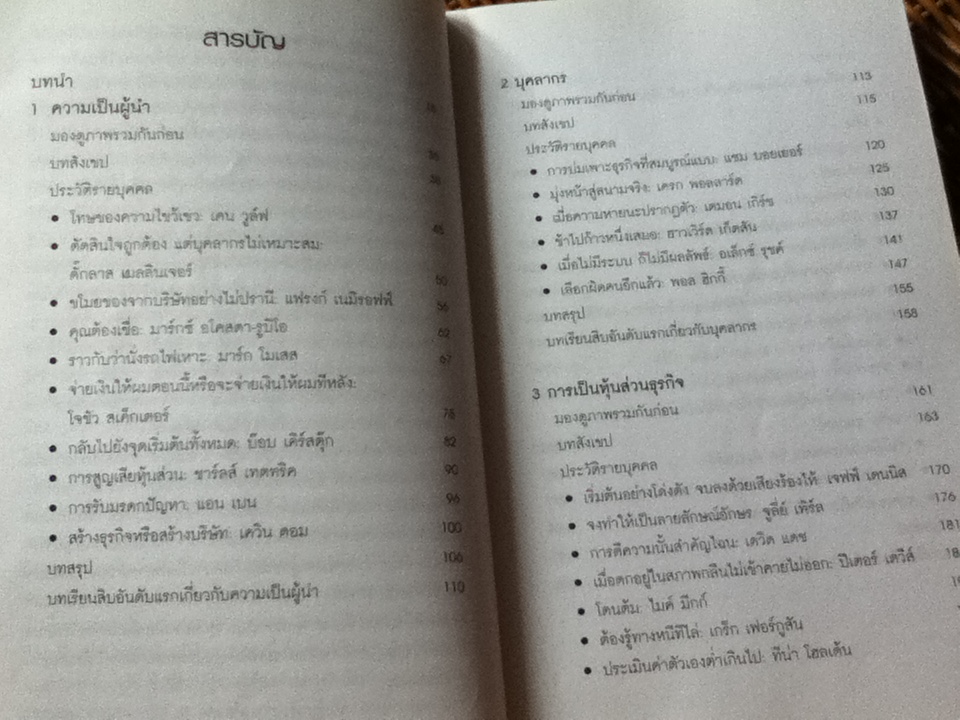 สารบัญ
บทนำ
1 ความเป็นผู้นำ
มองดูภาพรวมกันก่อน
บทสังเขป
ประวัติรายบุคคล
• โทษของความไขว้เขว: เคน วูล์ฟ
• ตัดสินใจถูกต้อง แต่บุคลากรไม่เหมาะสม:
ดั๊กลาส เมลลินเจอร์
• ขโมยของจากบริษัทอย่างไม่ปรานี: แฟรงก์ เนมิรอฟฟ์
• คุณต้องเชื่อ: มาร์กซ์ อโคสตา-รูบิโอ 62
• ราวกับว่านั่งรถไฟเหาะ: มาร์ก โมเสส 67
• จ่ายเงินให้ผมตอนนี้หรือจะจ่ายเงินให้ผมทีหลัง:
โจชัว สเค็กเตอร์ 76
• กลับไปยังจุดเริ่มต้นทั้งหมด: บ๊อบ เคิร์สตุ๊ก 82
• การสูญเสียหุ้นส่วน: ชาร์ลส์ เทตทริค 90
• การรับมรดกปัญหา: แอน เบน 96
• สร้างธุรกิจหรือสร้างบริษัท: เควิน ดอม 100
บทสรุป 106
บทเรียนสิบอันดับแรกเกี่ยวกับความเป็นผู้นำ 110
2 บุคลากร 113
มองดูภาพรวมกันก่อน 115
บทสังเขป
ประวัติรายบุคคล 120
• การบ่มเพาะธุรกิจที่สมบูรณ์แบบ: แซม บอยเยอร์ 125
• มุ่งหน้าสู่สนามจริง: เครก พอลลาร์ด 130
• เมื่อความหายนะปรากฏตัว: เดมอน เกิร์ซ 137
• ช้าไปก้าวหนึ่งเสมอ: ฮาวเวิร์ด เก็ตสัน 141
• เมื่อไม่มีระบบ ก็ไม่มีผลลัพธ์: อเล็กซ์ รุซค์ 147
• เลือกผิดคนอีกแล้ว: พอล ฮิกกี้ 155
บทสรุป 158
บทเรียนสิบอันดับแรกเกี่ยวกับบุคลากร
3 การเป็นหุ้นส่วนธุรกิจ 161
มองดูภาพรวมกันก่อน 163
บทสังเขป
ประวัติรายบุคคล 170
• เริ่มต้นอย่างโด่งดัง จบลงด้วยเสียงร้องไห้: เจฟฟ์ เดนนิส 176
• จงทำให้เป็นลายลักษณ์อักษร: จูลี่ย์ เทิร์ล 181
• การตีความนั้นสำคัญไฉน: เดวิด แดช
• เมื่อตกอยู่ในสภาพกลืนไม่เข้าคายไม่ออก: ปีเตอร์ เดวีส์
• โดนต้ม: ไมค์ มีกก์
• ต้องรู้ทางหนีทีไล่: เกร็ก เฟอร์กูสัน
• ประเมินค่าตัวเองต่ำเกินไป: ทีน่า โฮลเด้น